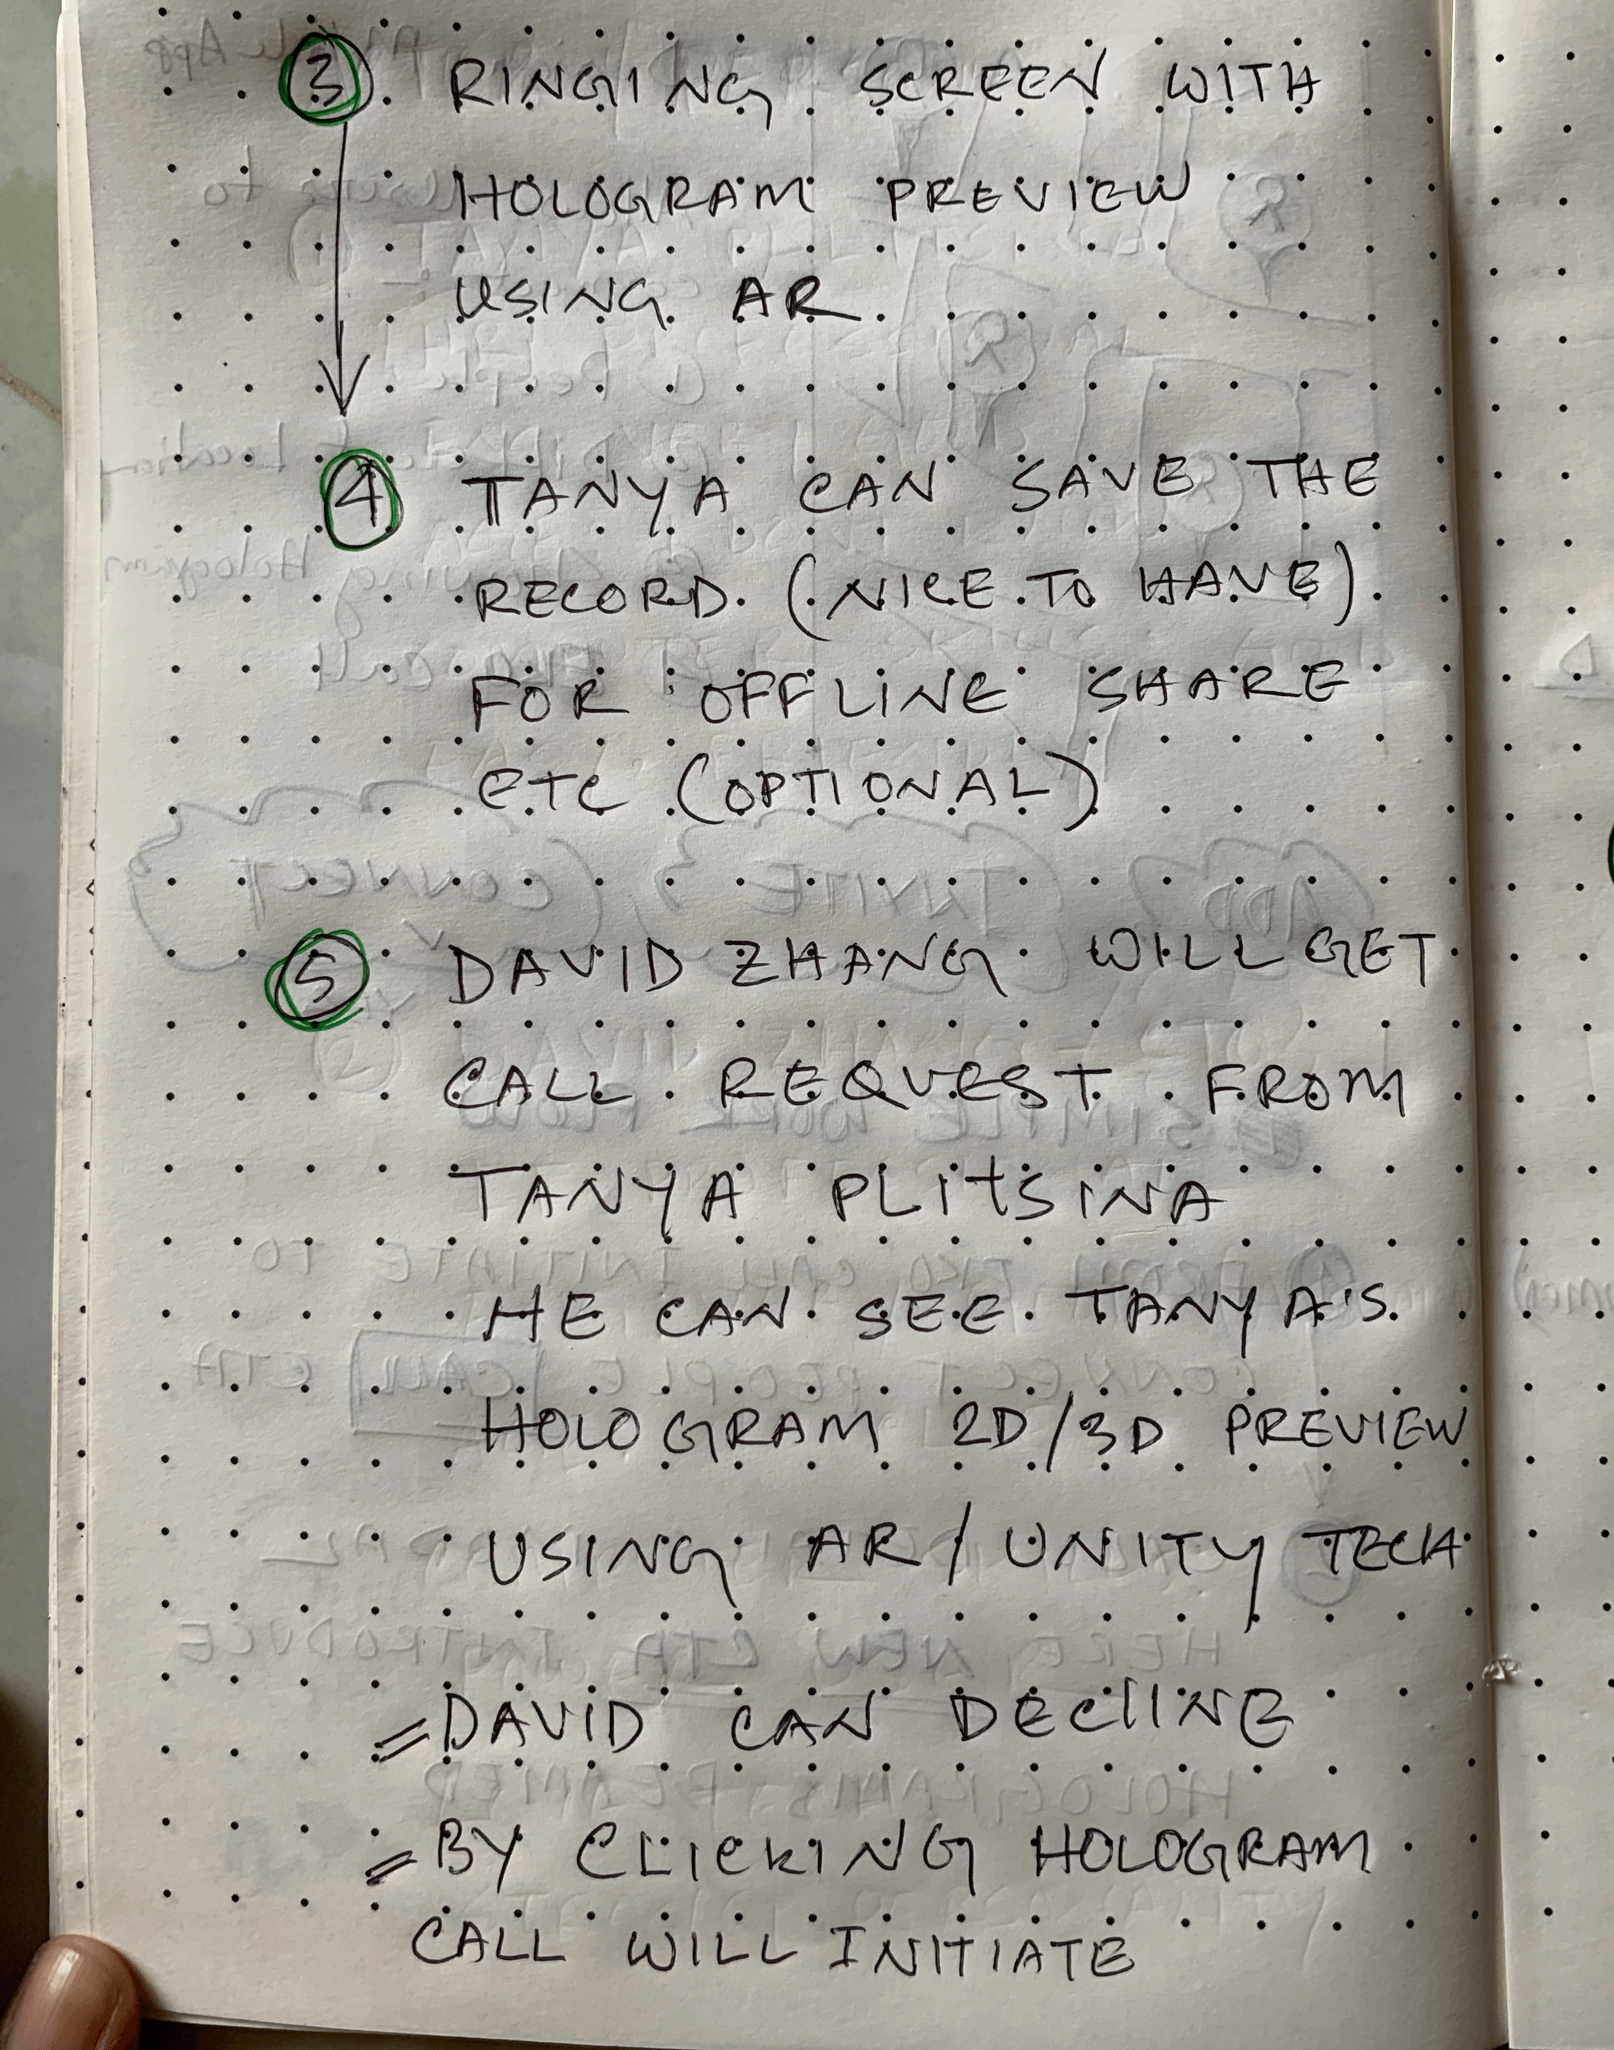 3 RINGING SCREEN WITH
HOLOGRAM PREVIEW
USING AR
4 TANYA CAN SAVE THE
RECORD (NICE TO HAVE)
FOR OFFLINE SHARE
etc (OPTIONAL)
5 DAVID ZHANG WILL GET
CALL REQUEST FROM
TANYA PLITSINA
HE CAN SEE TANYA'S
HOLOGRAM 2D/3D PREVIEW
USING AR/UNITY TECH
= DAVID CAN DECLINE
= BY CLICKING HOLOGRAM
CALL WILL INITIATE